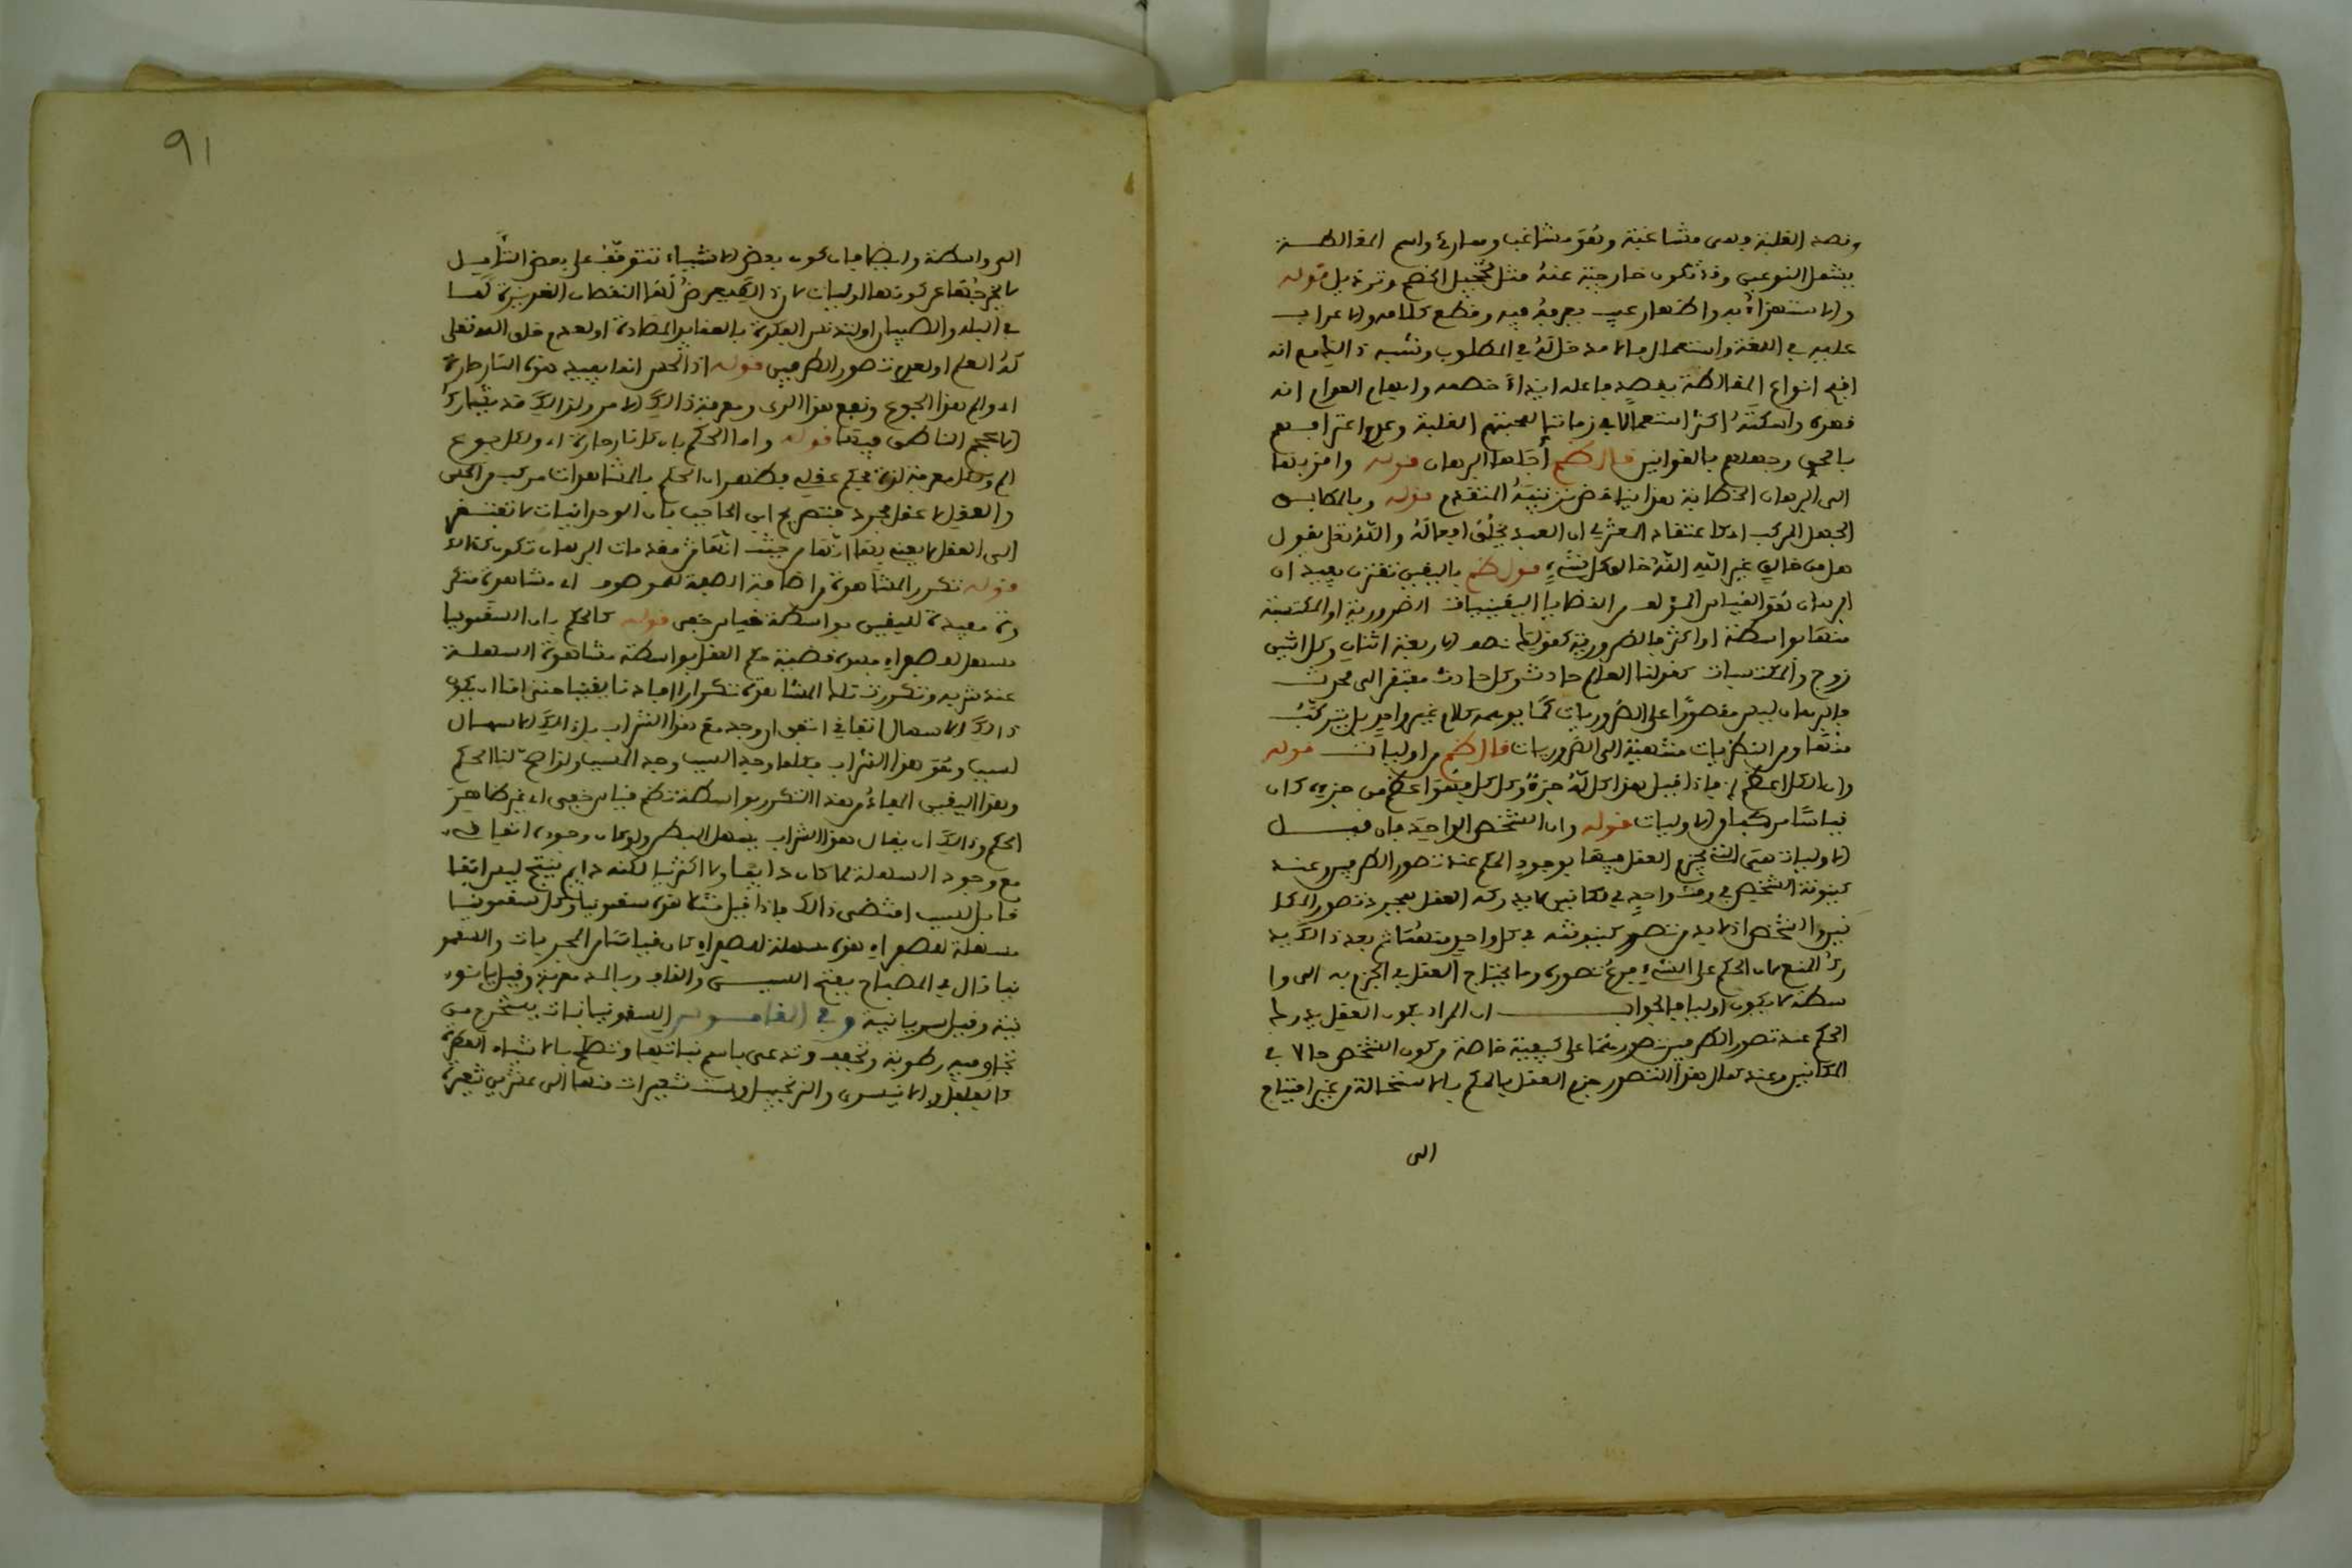 وقصد الغلبة وهي مشاغبة وهو مشاغب وممار واسم المغالطة
يشمل النوعين وقد تكون خارجية عنه مثل تخجيل الخصم وترذيل قوله
والاستهزاء به واظهار عيب يعرفه فيه وقطع كلامه والاعراب
عليه في اللغة واستعمال ما لا مدخل له في المطلوب ونسبه ذالك مع انه
اقبح انواع المغالطة يقصد فاعله ايذاء خصمه وايهام العوام انه
قهره واسكته اكثر استعمالا في زماننا لمحبتهم الغلبة وعدم اعترافهم
بالحق وجهلهم بالقوانين قال ظم أجلها البرهان قوله واقربها
الى البرهان الخطابة هذا يناقض ترتيبه المتقدم قوله وبالعكس
الجهل المركب كاعتقاد المعتزلي ان العبد يخلق افعاله والله تعلى يقول
هل من خالق غير الله الله خالق كل شيء قول ظم باليقين تقترن يفيد ان
البرهان هو القياس المؤلف من القضايا اليقينيات الضرورية او المكتسبة
منها بواسطة او اكثر فالضرورية كقولهم نصف الاربعة اثنان وكل اثنين
زوج والمكتسبات كقولنا العالم حادث وكل حادث مفتقر الى محدث
فالبرهان ليس مقصورا على الضروريات كما يوهمه كلام غير واحد بل يتركب
منها ومن النظريات منتهية الى الضروريات قال ظم من اوليات قوله
وان الكل اعظم الخ فاذا قيل هذا كل له جزء وكل كل فهو اعظم من جزئه كان
قياسا مركبا من الاوليات قوله وان الشخص الواحد فان قيل
الاوليات هي التي يجزم العقل فيها بوجود الحكم عند تصور الطرفين وعند
كينونة الشخص في وقت واحد في مكانين لا يدركه العقل بمجرد تصور المكا
نين والشخص اذ لابد من تصور كينونته في كل واحد منهما ثم بعد ذالك يد
رك المنع لان الحكم على الشيء فرع تصوره وما يحتاج العقل في الجزم به الى وا
سطة لا يكون اوليا فالجواب ان المراد بكون العقل يدرك
الحكم عند تصور الطرفين تصورهما على كيفية خاصة من كون الشخص حالا في
المكانين وعند كمال هذا التصور جزم العقل بالحكم بالاستحالة من غير احتياج
الى
91
الى واسطة وايضا فان كون بعض الاشياء تتوقف على بعض التأمل
لا يخرجها عن كونها اوليات لان ذالك يعرض لها لنقصان الغريزة كما
في البله والصبيان او لتدنس الفكرة بالعقايد المضادة او لعدم خلق الله تعلى
له العلم او لعدم تصور الطرفين قوله اذ الحس انما يفيد هذه النار حارة
او الم هذا الجوع ونفع هذا الري ومعرفة ذالك الامر ولذالك قد يشارك
الاعجم الناطق فيها قوله واما الحكم بان كل نار حارة او وكل جوع
الم وكل معرفة لذة فحكم عقلي فظهر ان الحكم بالمشاهدات مركب من الحس
والعقل لا عقل مجرد فتصريح ابن الحاجب بان الوجدانيات لا تفتقر
الى العقل لا يعني بها انها من حيث انها من مقدمات البرهان تكون كذالك
قوله تكرر المشاهدة من اضافة الصفة للموصوف اي مشاهدة متكر
رة مفيدة لليقين بواسطة قياس خفي قوله كالحكم بان السقمونيا
مسهل للصفراء فهذه قضية حكم العقل بواسطة مشاهدة المسهلة
عند شربه وتكررت تلك المشاهدة تكرارا افادنا يقينا حتى امنا ان يكون
ذالك الاسهال اتفاقي اتفق ان وجد مع هذا الشراب بل ذالك الاسهال
لسبب وهو هذا الشراب فكلما وجد السبب وجد المسبب ولذا صح لنا الحكم
وهذا اليقين افاده هذا التكرر بواسطة تنظم قياس خفي اي غير ظاهر
الحكم وذالك ان يقال هذا الشراب يسهل البطن ولو كان وجوده اتفاقي
مع وجود المسهلة لما كان دايما ولا اكثريا لكنه دايم ينتج ليس اتفا
قا بل لسبب اقتضى ذالك فاذا قيل مثلا هذه سقمونيا وكل سقمونيا
مسهلة للصفراء هذه مسهلة للصفراء كان قياسا من المجربات والسقمو
نيا قال في المصباح بفتح السين والقاف وبالمد معربة وقيل يونا
نية وقيل سريانية وفي القاموس السقمونيا نبات يستخرج من
تجاويفه رطوبة وتجفف وتدعى باسم نباتها وتصلح بالاشياء العطرة
كالفلفل والانيسون والزنجبيل وست شعيرات منها الى عشرين شعيرة